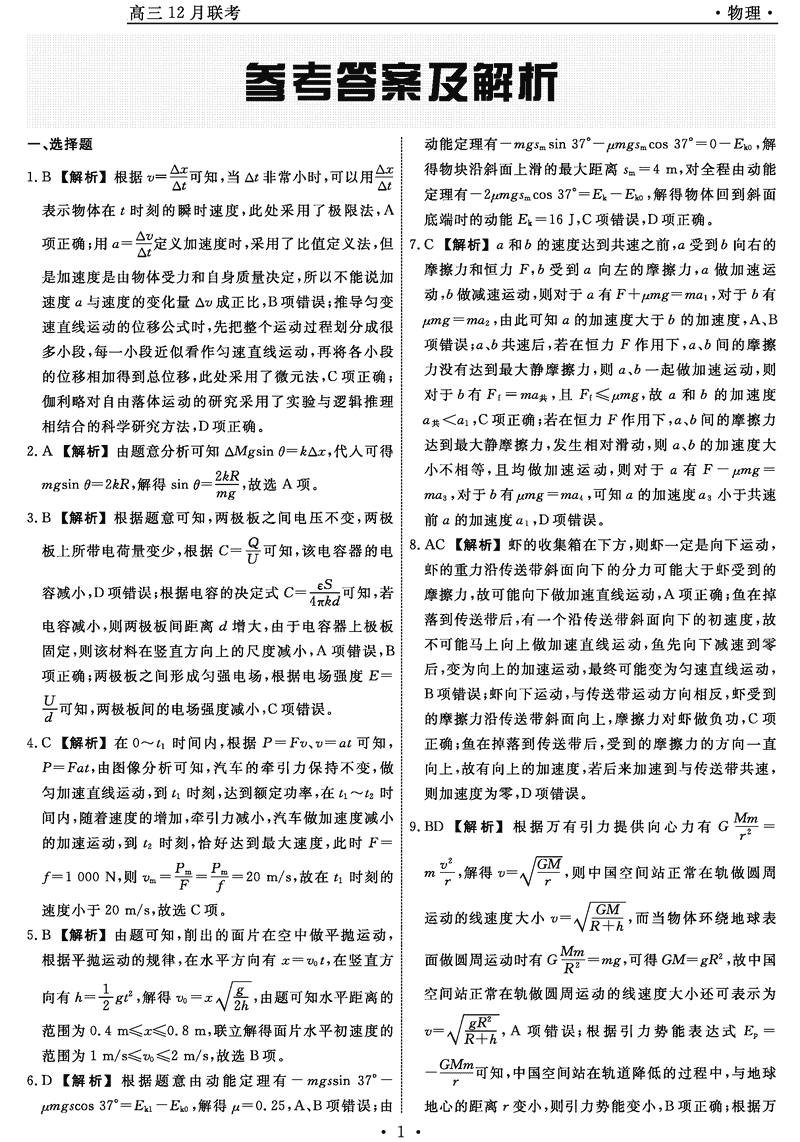 高三12月联考
·物理·
参考答案及解析
一、选择题
1. B 【解析】根据 v=Δx/Δt可知,当 Δt 非常小时,可以用Δx/Δt
表示物体在 t 时刻的瞬时速度,此处采用了极限法,A
项正确;用 a=Δv/Δt定义加速度时,采用了比值定义法,但
是加速度是由物体受力和自身质量决定,所以不能说加
速度 a 与速度的变化量 Δv 成正比,B 项错误;推导匀变
速直线运动的位移公式时,先把整个运动过程划分成很
多小段,每一小段近似看作匀速直线运动,再将各小段
的位移相加得到总位移,此处采用了微元法,C 项正确;
伽利略对自由落体运动的研究采用了实验与逻辑推理
相结合的科学研究方法,D 项正确。
2. A 【解析】由题意分析可知 ΔMgsin θ=kΔx,代入可得
mgsin θ=2kR,解得 sin θ=2kR/mg,故选 A 项。
3. B 【解析】根据题意可知,两极板之间电压不变,两极
板上所带电荷量变少,根据 C=Q/U可知,该电容器的电
容减小,D 项错误;根据电容的决定式 C=εS/4πkd可知,若
电容减小,则两极板间距离 d 增大,由于电容器上极板
固定,则该材料在竖直方向上的尺度减小,A 项错误,B
项正确;两极板之间形成匀强电场,根据电场强度 E=
U/d可知,两极板间的电场强度减小,C 项错误。
4. C 【解析】在 0～t₁ 时间内,根据 P=Fv、v=at 可知,
P=Fat,由图像分析可知,汽车的牵引力保持不变,做
匀加速直线运动,到 t₁ 时刻,达到额定功率,在 t₁～t₂ 时
间内,随着速度的增加,牵引力减小,汽车做加速度减小
的加速运动,到 t₂ 时刻,恰好达到最大速度,此时 F=
f=1 000 N,则 vₘ=Pₘ/F=Pₘ/f=20 m/s,故在 t₁ 时刻的
速度小于 20 m/s,故选 C 项。
5. B 【解析】由题可知,削出的面片在空中做平抛运动,
根据平抛运动的规律,在水平方向有 x=v₀t,在竖直方
向有 h=1/2 gt²,解得 v₀=x√(g/2h),由题可知水平距离的
范围为 0.4 m≤x≤0.8 m,联立解得面片水平初速度的
范围为 1 m/s≤v₀≤2 m/s,故选 B 项。
6. D 【解析】根据题意由动能定理有－mgssin 37°－
μmgscos 37°=Eₖ₁－Eₖ₀,解得 μ=0.25,A、B 项错误;由
动能定理有－mgsₘsin 37°－μmgsₘcos 37°=0－Eₖ₀,解
得物块沿斜面上滑的最大距离 sₘ=4 m,对全程由动能
定理有－2μmgsₘcos 37°=Eₖ－Eₖ₀,解得物体回到斜面
底端时的动能 Eₖ=16 J,C 项错误,D 项正确。
7. C 【解析】a 和 b 的速度达到共速之前,a 受到 b 向右的
摩擦力和恒力 F,b 受到 a 向左的摩擦力,a 做加速运
动,b 做减速运动,则对于 a 有 F＋μmg=ma₁,对于 b 有
μmg=ma₂,由此可知 a 的加速度大于 b 的加速度,A、B
项错误;a、b 共速后,若在恒力 F 作用下,a、b 间的摩擦
力没有达到最大静摩擦力,则 a、b 一起做加速运动,则
对于 b 有 Ff=ma共,且 Ff≤μmg,故 a 和 b 的加速度
a共<a₁,C 项正确;若在恒力 F 作用下,a、b 间的摩擦力
达到最大静摩擦力,发生相对滑动,则 a、b 的加速度大
小不相等,且均做加速运动,则对于 a 有 F－μmg=
ma₃,对于 b 有 μmg=ma₄,可知 a 的加速度 a₃ 小于共速
前 a 的加速度 a₁,D 项错误。
8. AC 【解析】虾的收集箱在下方,则虾一定是向下运动,
虾的重力沿传送带斜面向下的分力可能大于虾受到的
摩擦力,故可能向下做加速直线运动,A 项正确;鱼在掉
落到传送带后,有一个沿传送带斜面向下的初速度,故
不可能马上向上做加速直线运动,鱼先向下减速到零
后,变为向上的加速运动,最终可能变为匀速直线运动,
B 项错误;虾向下运动,与传送带运动方向相反,虾受到
的摩擦力沿传送带斜面向上,摩擦力对虾做负功,C 项
正确;鱼在掉落到传送带后,受到的摩擦力的方向一直
向上,故有向上的加速度,若后来加速到与传送带共速,
则加速度为零,D 项错误。
9. BD 【解析】根据万有引力提供向心力有 G Mm/r²=
m v²/r,解得 v=√(GM/r),则中国空间站正常在轨做圆周
运动的线速度大小 v=√(GM/(R+h)),而当物体环绕地球表
面做圆周运动时有 G Mm/R²=mg,可得 GM=gR²,故中国
空间站正常在轨做圆周运动的线速度大小还可表示为
v=√(gR²/(R+h)),A 项错误;根据引力势能表达式 Eₚ=
－GMm/r可知,中国空间站在轨道降低的过程中,与地球
地心的距离 r 变小,则引力势能变小,B 项正确;根据万
·1·